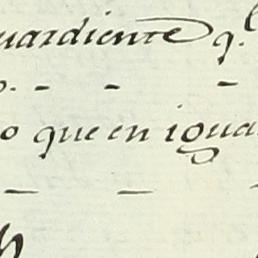 uardiente q.l
o que en igua